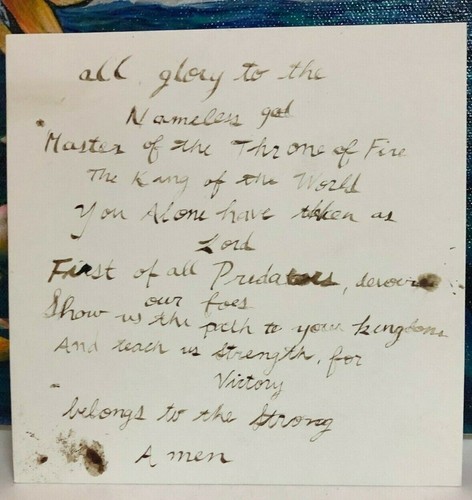 all glory to the
Nameless god
Master of the Throne of Fire
The King of the World
You Alone have taken as
Lord
First of all Predators, devour
our foes
Show us the path to your kingdom
And teach us Strength, for
Victory
belongs to the Strong
Amen